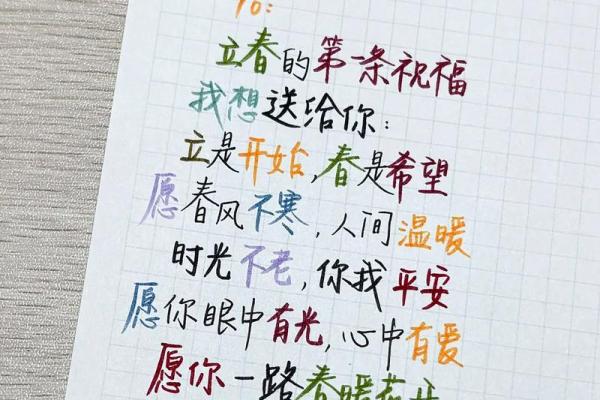 To:
立春的第一条祝福
我想送给你:
立是开始,春是希望
愿春风不寒,人间温暖
时光不老,你我平安
愿你眼中有光,心中有爱
愿你一路春暖花开